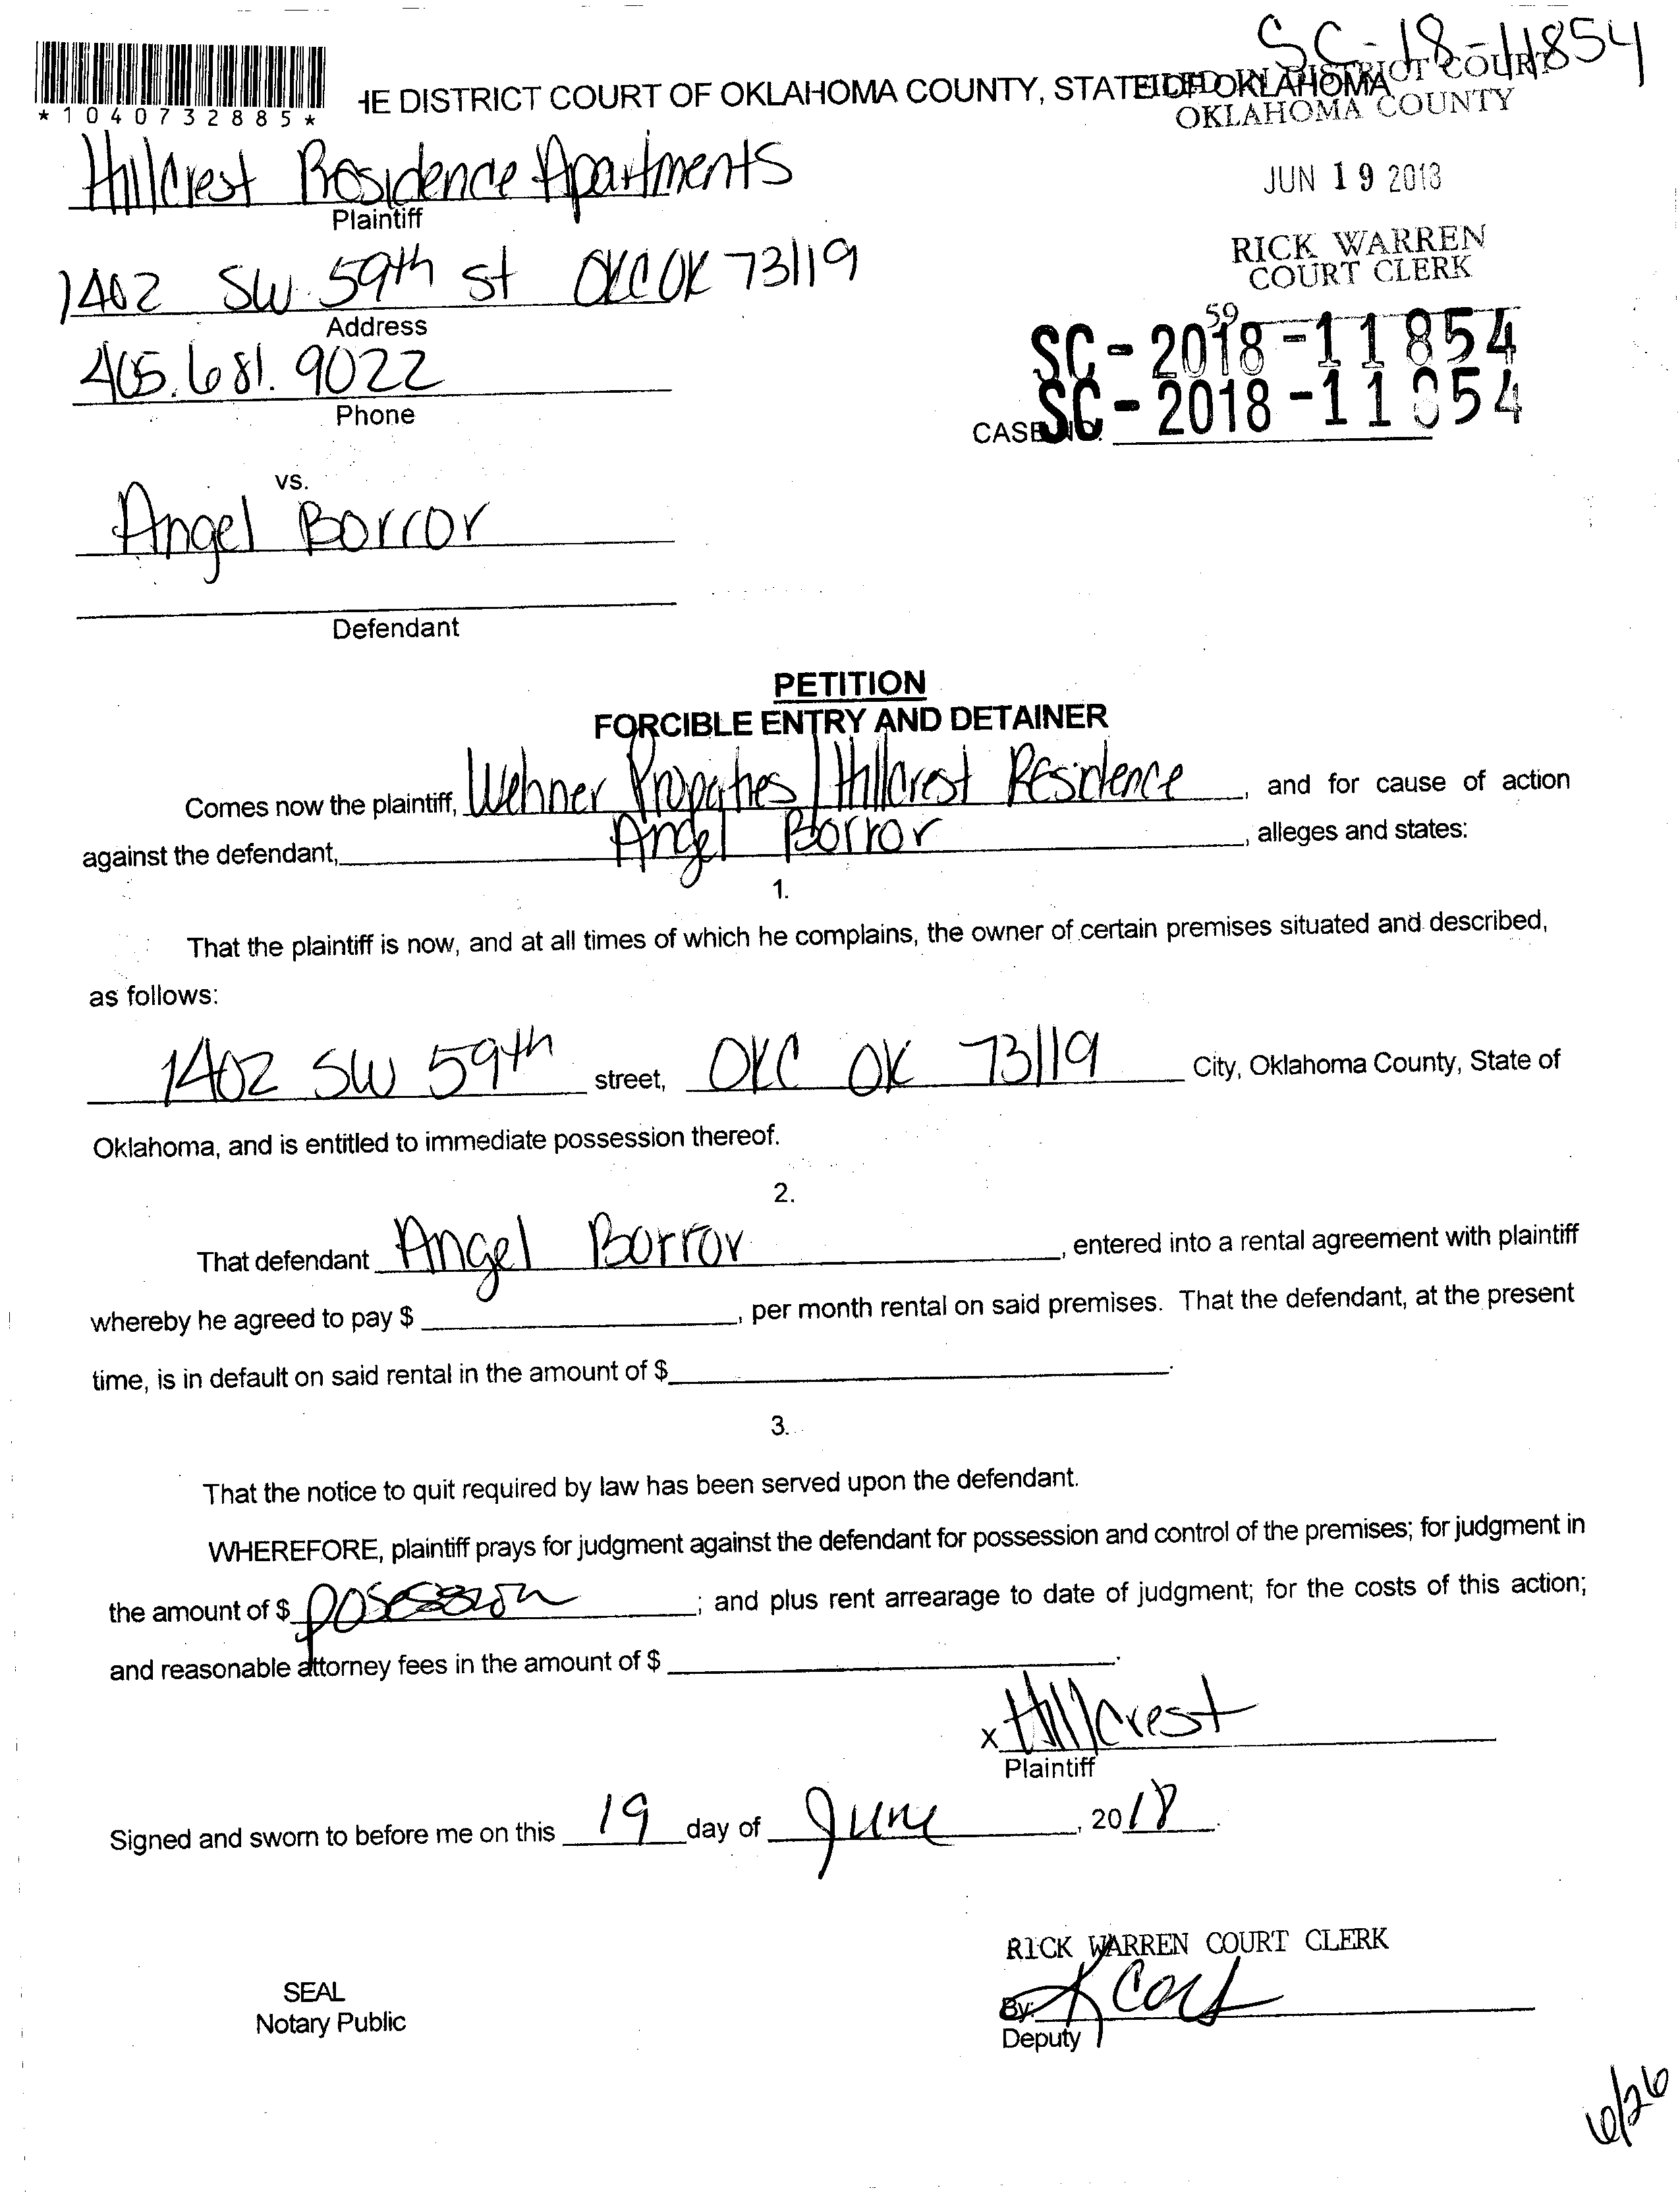 SC-18-11854
*1040732885*
HE DISTRICT COURT OF OKLAHOMA COUNTY, STATE OF OKLAHOMA
FILED IN DISTRICT COURT
OKLAHOMA COUNTY
Hillcrest Residence Apartments
Plaintiff
JUN 19 2018
1402 SW 59th St OKC OK 73119
Address
RICK WARREN
COURT CLERK
405.681.9022
Phone
59
SC-2018-11854
SC-2018-11854
CASE NO.
vs.
Angel Borror
Defendant
PETITION
FORCIBLE ENTRY AND DETAINER
Comes now the plaintiff, Wehner Properties/Hillcrest Residence, and for cause of action
against the defendant, Angel Borror, alleges and states:
1.
That the plaintiff is now, and at all times of which he complains, the owner of certain premises situated and described,
as follows:
1402 SW 59th street, OKC OK 73119 City, Oklahoma County, State of
Oklahoma, and is entitled to immediate possession thereof.
2.
That defendant Angel Borror, entered into a rental agreement with plaintiff
whereby he agreed to pay $ , per month rental on said premises. That the defendant, at the present
time, is in default on said rental in the amount of $ .
3.
That the notice to quit required by law has been served upon the defendant.
WHEREFORE, plaintiff prays for judgment against the defendant for possession and control of the premises; for judgment in
the amount of $ posession; and plus rent arrearage to date of judgment; for the costs of this action;
and reasonable attorney fees in the amount of $ .
x Hillcrest
Plaintiff
Signed and sworn to before me on this 19 day of June, 2018.
RICK WARREN COURT CLERK
SEAL
Notary Public
By:
Deputy
6/26